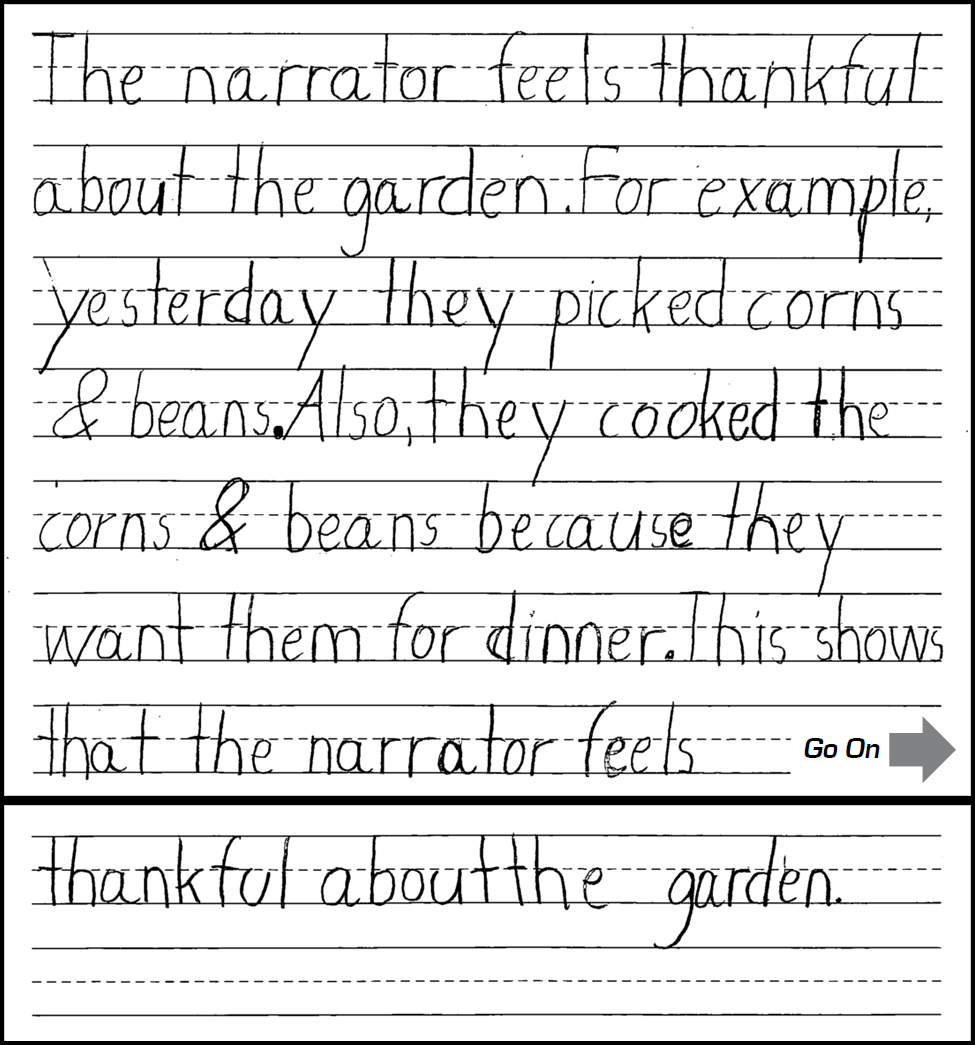 The narrator feels thankful
about the garden. For example,
yesterday they picked corns
& beans. Also, they cooked the
corns & beans because they
want them for dinner. This shows
that the narrator feels
Go On
thankful about the garden.